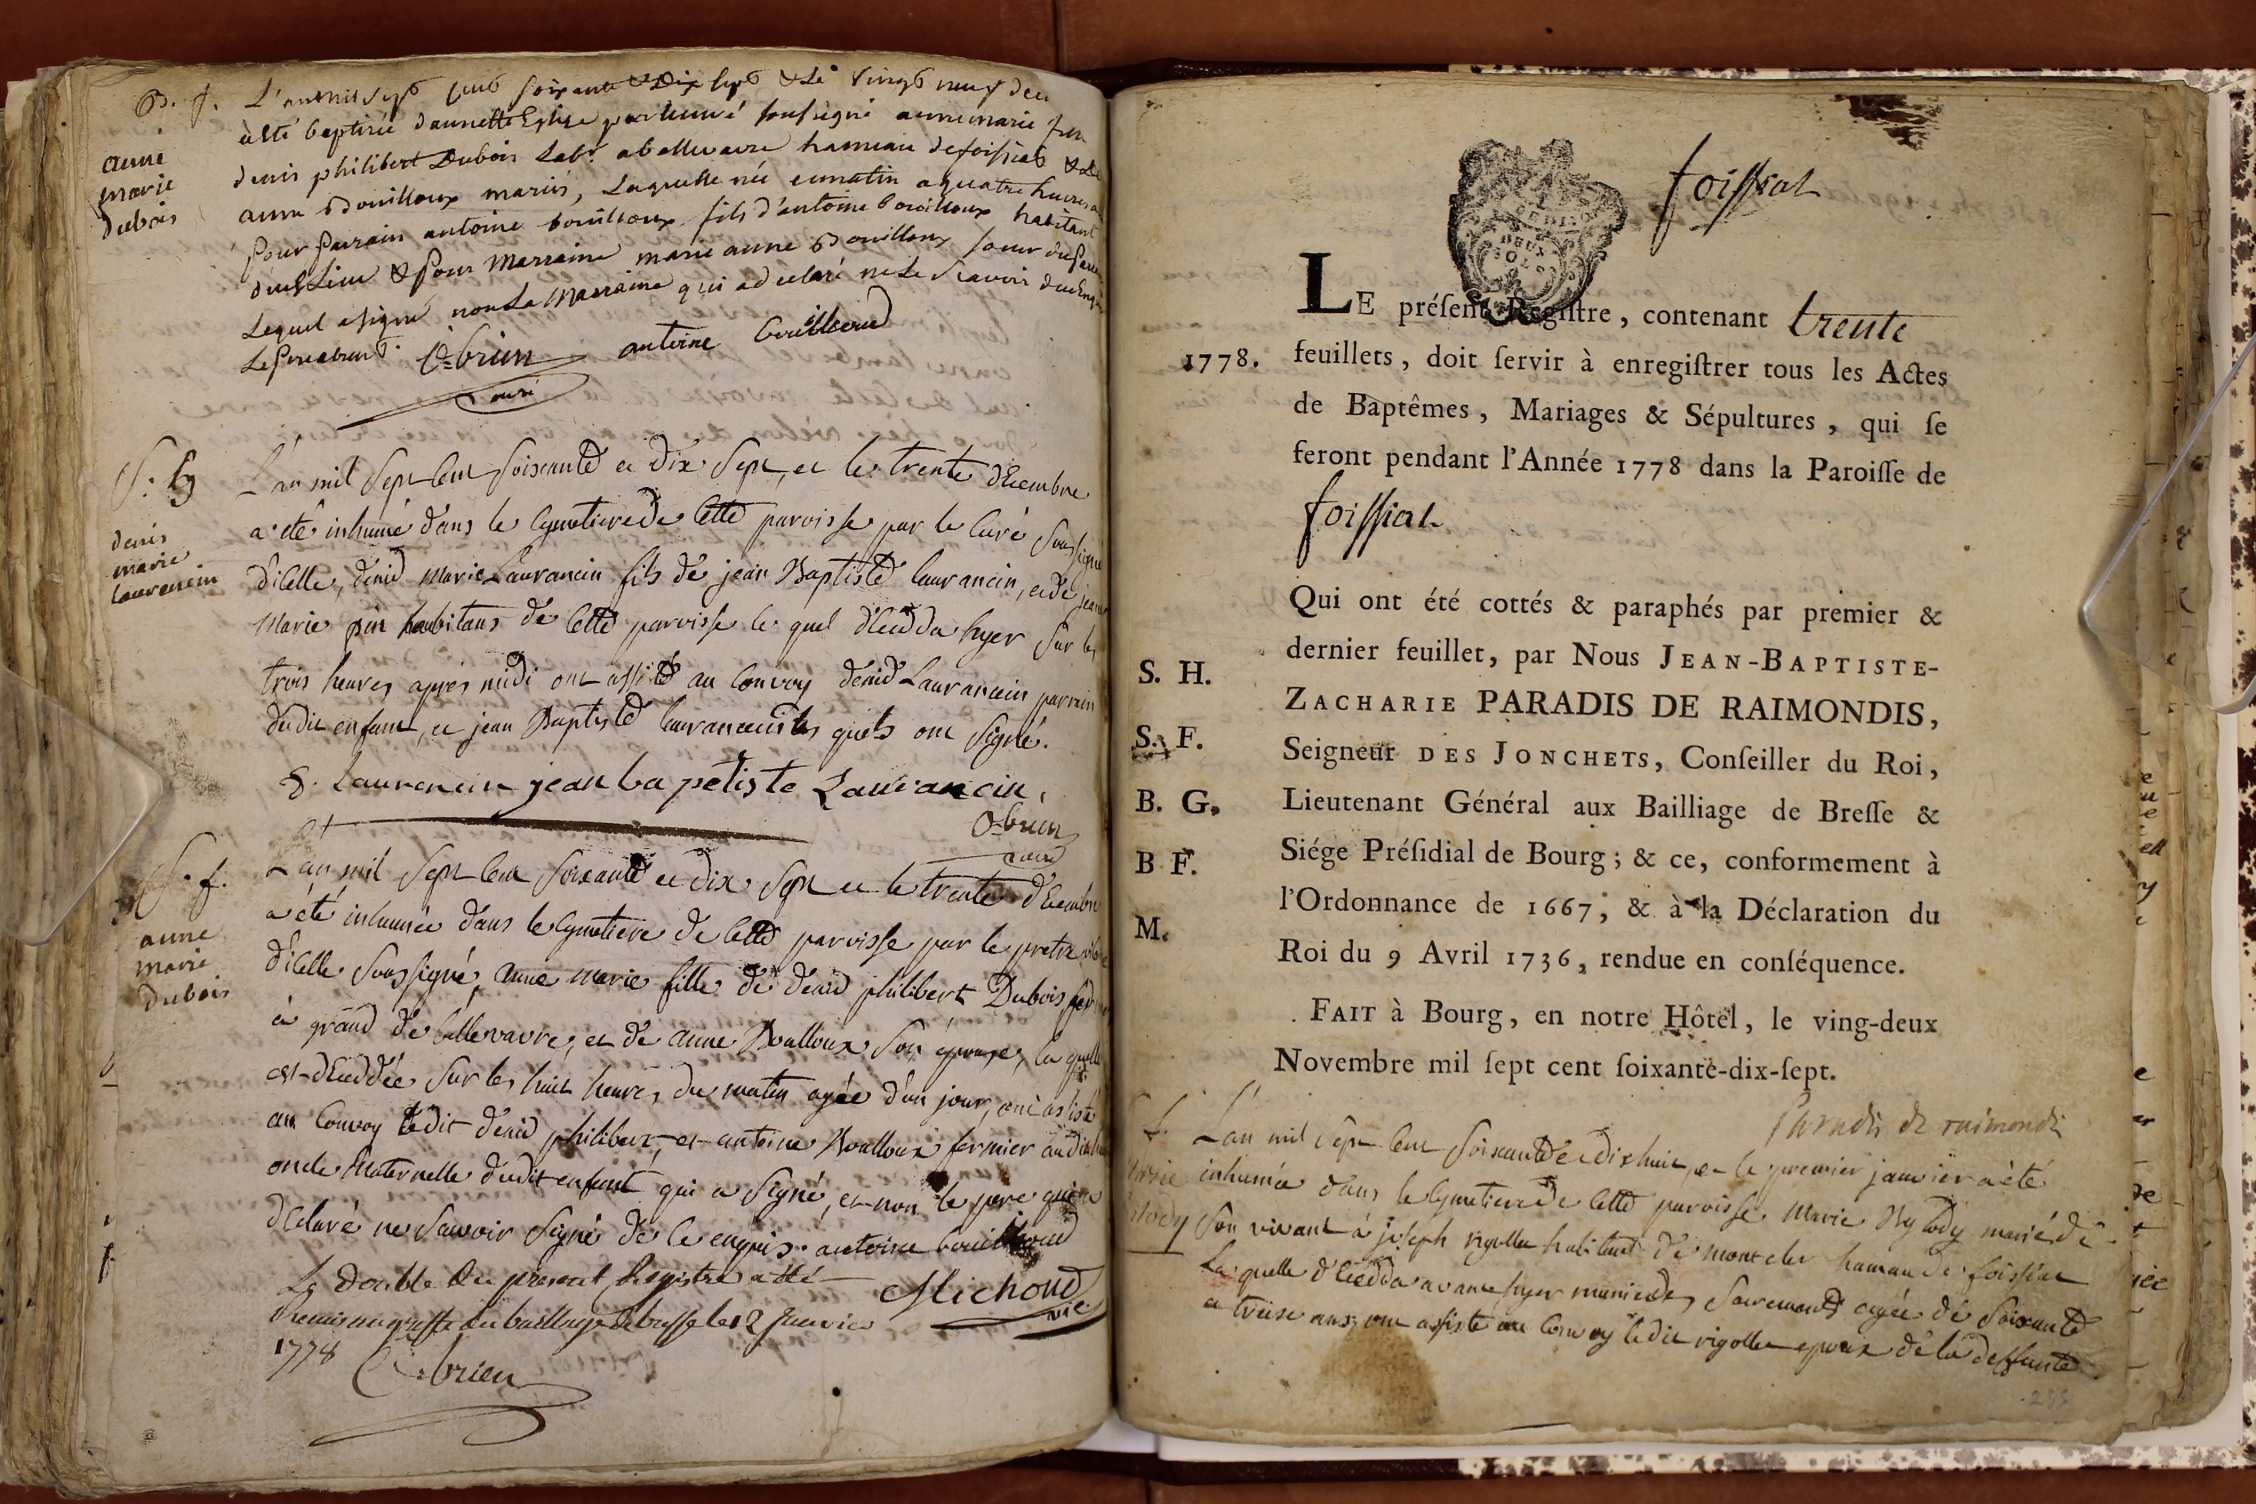 B. f.
anne
marie
dubois
L'an mil sept cent soixante & dix sept & le vingt neuf de
a été baptisée dans cette Eglise par le curé soussigné anne marie
denis philibert Dubois Labr. a bellevavre hameau de foissiat &
anne Bouilloux mariés, Laquelle née ce matin a quatre heures
pour parrain antoine bouilloux fils d'antoine bouilloux habitant
dud. Lieu & pour Marraine marie anne Bouilloux soeur du
Lequel a signé non La Marraine qui a declaré ne le scavoir
antoine bouilloud
C. brun
curé
S. g
denis
marie
laurencin
L'an mil sept cent soixante et dix sept, et le trente decembre
a été inhumé dans le cymetiere de cette paroisse par le curé soussigné
d'icelle, denis Marie Laurancin fils de jean Baptiste laurancin, et de
Marie pin habitans de cette paroisse le quel deceda hyer sur les
trois heures apprès midi ont assisté au convoy denis Laurancin parrain
dudit enfant, et jean Baptiste laurancin les quels ont signé.
d. Laurencin jean bapetiste Laurancin
C. brun
curé
S. f.
anne
marie
dubois
L'an mil sept cent soixante et dix sept et le trente decembre
a été inhumée dans le cymetiere de cette paroisse par le pretre
d'icelle soussigné, anne marie fille de denis philibert Dubois,
à grand de bellevavre, et de anne Boulloux son epouse, la quelle
est deceddée sur les huit heures du matin agée d'un jour, ont assisté
au convoy ledit denis philibert, et antoine Boulloux fermier audit
oncle Maternelle dudit enfant qui a signé, et non le pere qui a
declaré ne savoir signé de ce enquis. antoine bouilloud
Michoud
vic
Le double du present Registre a été
remis au greffe du bailliage de bresse le 12 Janvier
1778 C. brun
foissiat
DEUX
SOLS
LE préſent Regiſtre, contenant trente
1778.
feuillets, doit ſervir à enregiſtrer tous les Actes
de Baptêmes, Mariages & Sépultures, qui ſe
feront pendant l'Année 1778 dans la Paroiſſe de
foissiat
Qui ont été cottés & paraphés par premier &
dernier feuillet, par Nous JEAN-BAPTISTE-
S. H.
ZACHARIE PARADIS DE RAIMONDIS,
S. F.
Seigneur DES JONCHETS, Conſeiller du Roi,
B. G.
Lieutenant Général aux Bailliage de Breſſe &
B F.
Siége Préſidial de Bourg; & ce, conformement à
l'Ordonnance de 1667, & à la Déclaration du
M.
Roi du 9 Avril 1736, rendue en conſéquence.
FAIT à Bourg, en notre Hôtel, le ving-deux
Novembre mil ſept cent ſoixante-dix-ſept.
Paradis de raimondi
L'an mil sept cent soixante et dix huit, et le premier janvier a été
inhumée dans le cymetiere de cette paroisse Marie mariée de
son vivant à joseph rigollet habitant de montcler hameau de foissiat
la quelle deceda avant hyer munie des sacrements agée de soixante
et treise ans, ont assisté au convoy ledit rigollet epoux de la deffunte